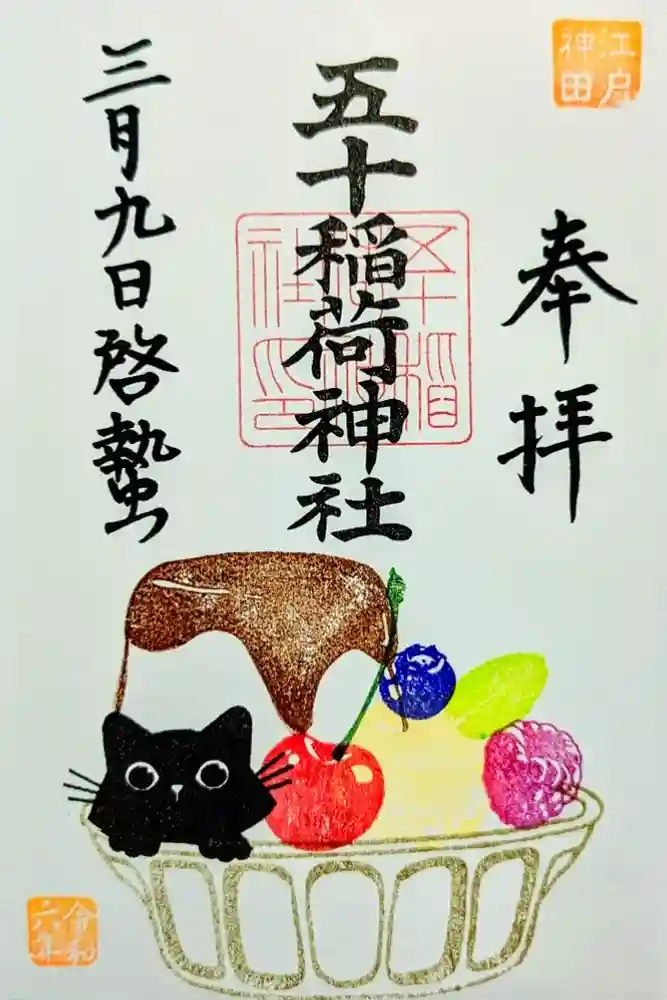 江戸
神田
奉拝
五十稲荷神社
五十稲
荷神
社印
三月九日啓蟄
令和
六年